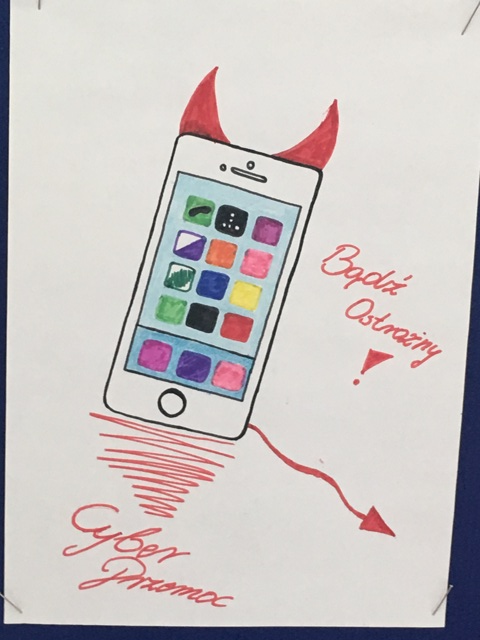 Bądź
Ostrożny
!
Cyber
Przemoc